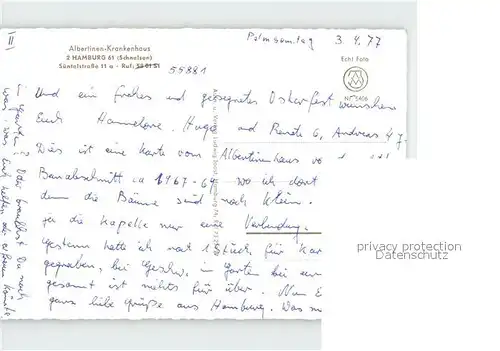 II
Albertinen-Krankenhaus
2 HAMBURG 61 (Schnelsen)
Süntelstraße 11 a · Ruf: 58 01 51
55881
Palmsonntag 3.4.77
Echt Foto
Und ein frohes und gesegnetes Osterfest wünschen
Euch Hannelore, Hugo und Renate G, Andreas 4 J.
Dies ist eine Karte vom Albertinenhaus vo
Bauabschnitt ca 1967-69 wo ich dort
denn die Bäume sind noch klein.
ja die Kapelle nur eine Verbindung.
Gestern hatte ich mal 1 Stück für Kar
gegraben, bei Geschw. im Garten bei
gesamt ist nichts für über. Nun
ganz liebe Grüße aus Hamburg. Was
Oder brauchst Du noch
was, was Euch helfen oder erfreuen könnte.
privacy protection
Datenschutz